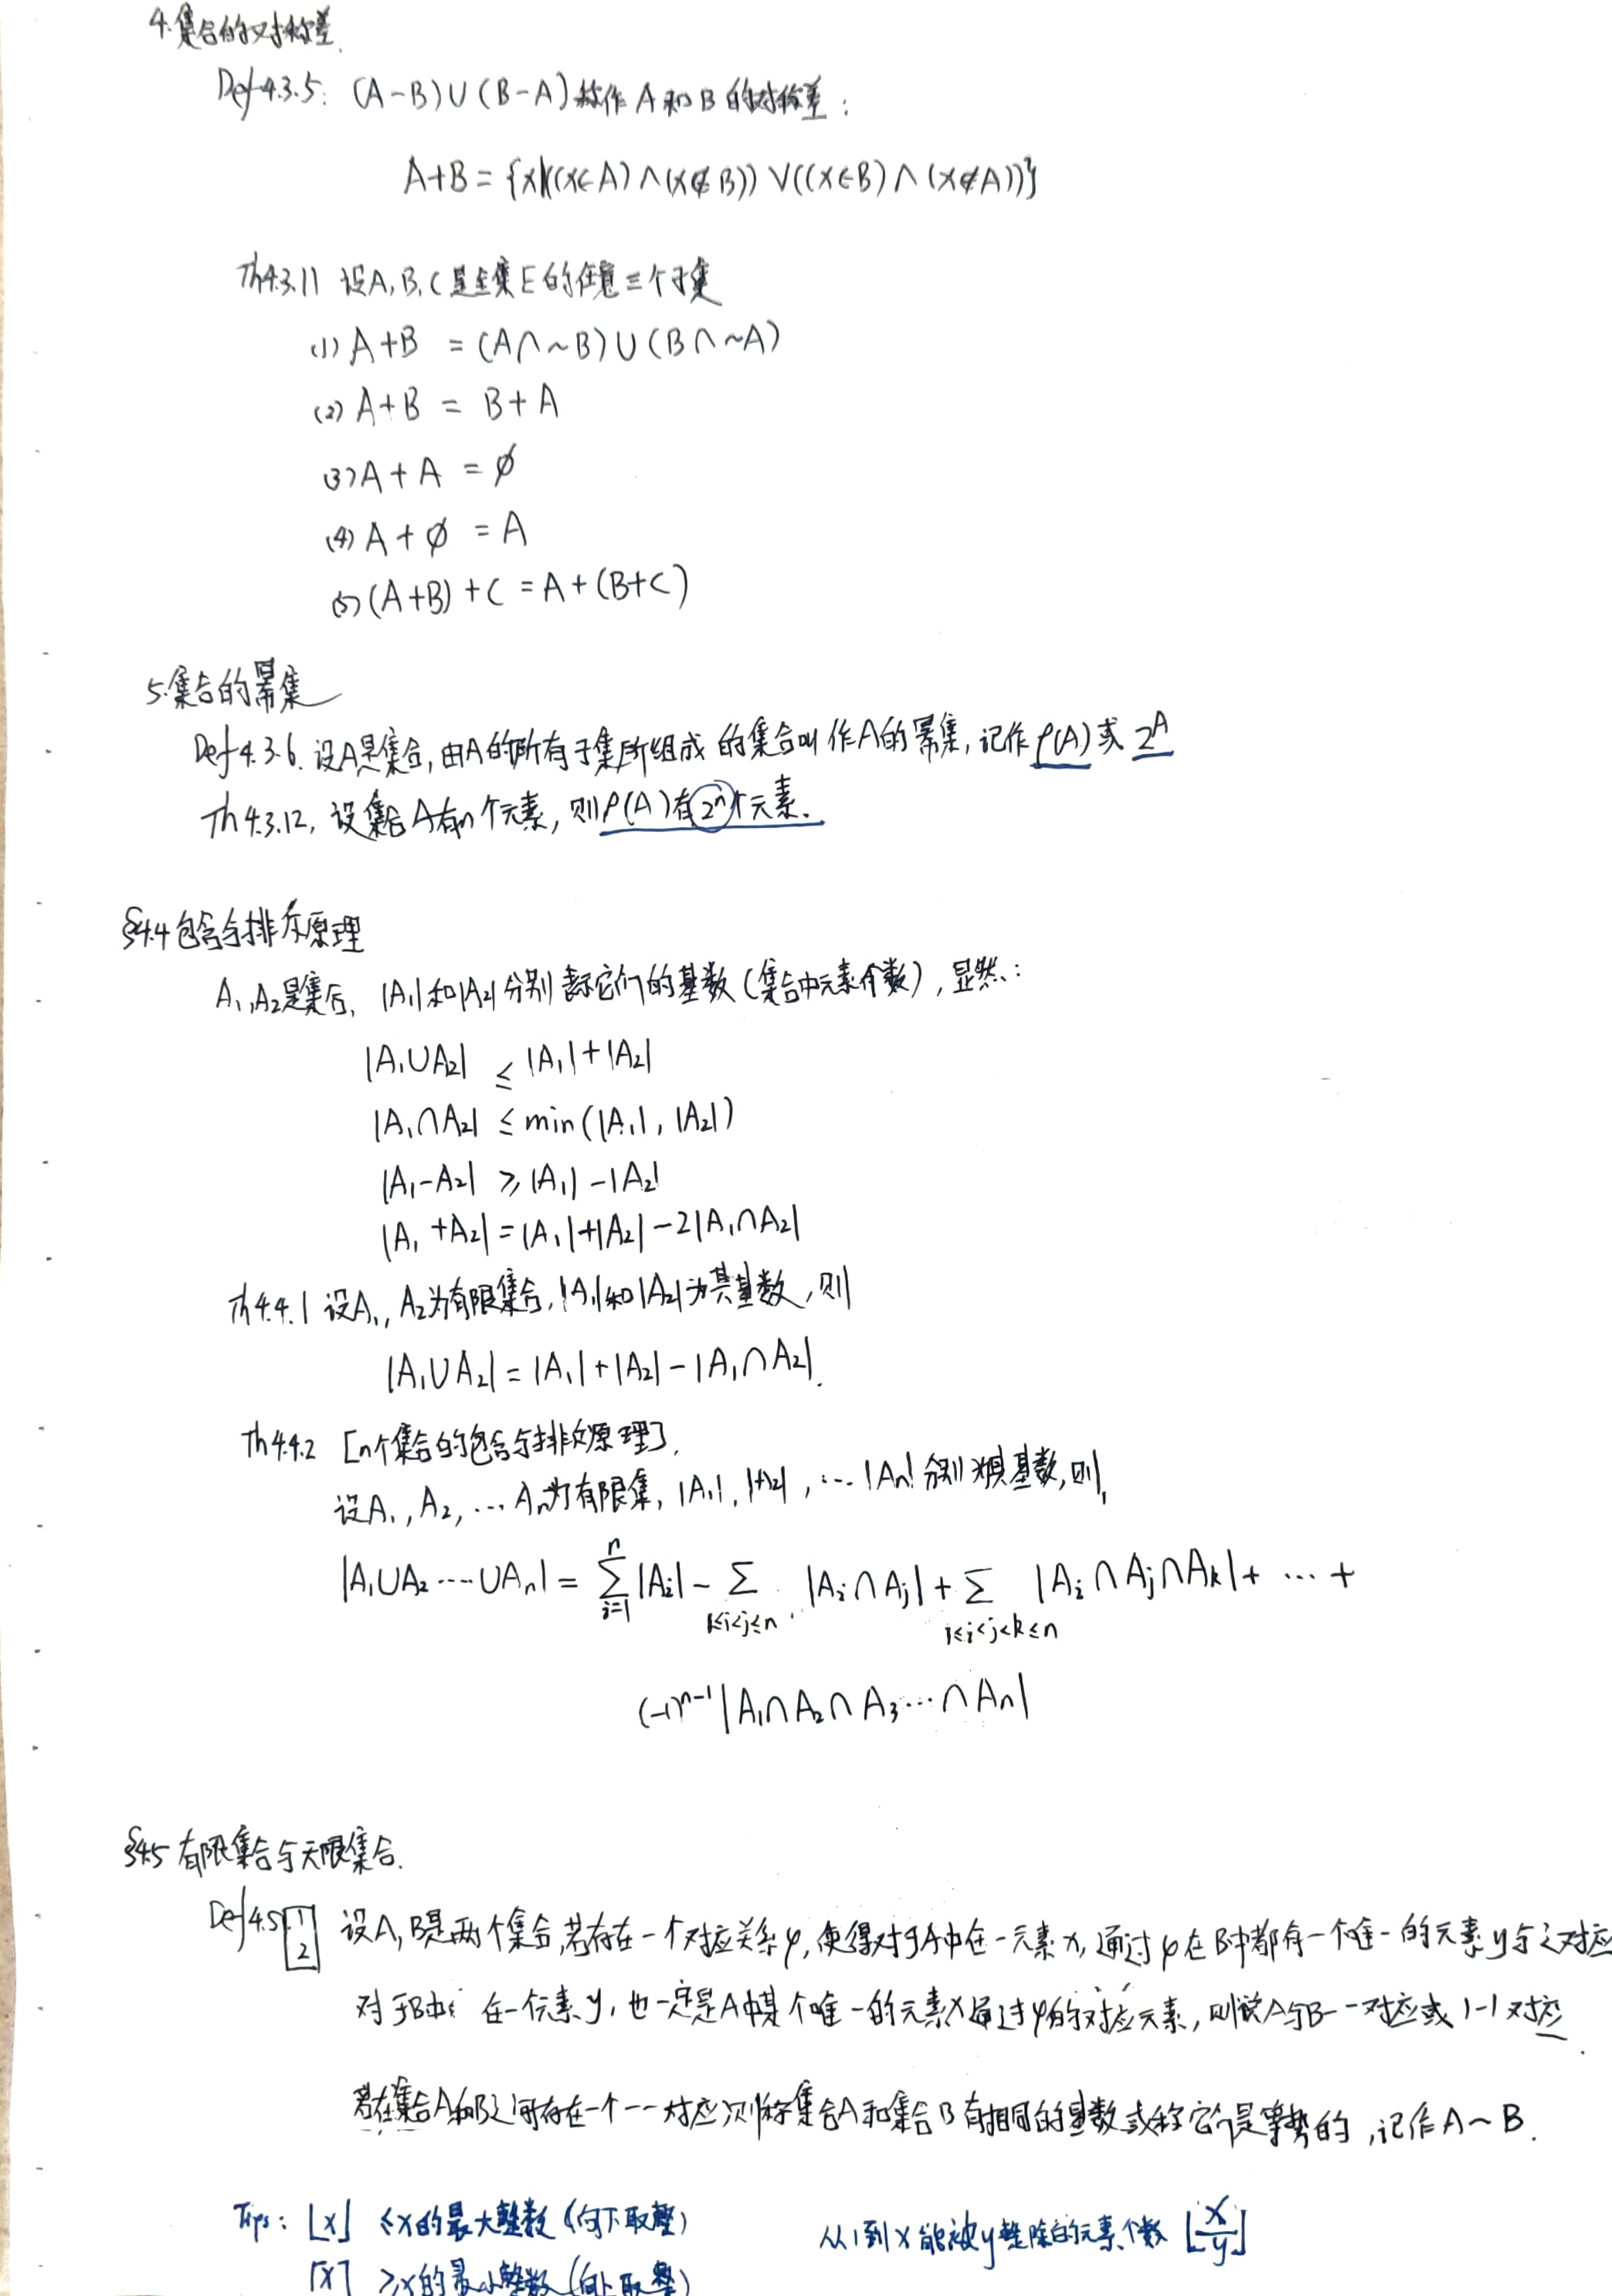 4.集合的对称差.
Def4.3.5: (A-B)∪(B-A)称作A和B的对称差:
A+B={x|((x∈A)∧(x∉B))∨((x∈B)∧(x∉A))}
Th4.3.11 设A,B,C是全集E的任意三个子集
(1) A+B = (A∩~B)∪(B∩~A)
(2) A+B = B+A
(3) A+A = ∅
(4) A+∅ = A
(5) (A+B)+C = A+(B+C)
5.集合的幂集
Def4.3.6.设A是集合,由A的所有子集所组成的集合叫作A的幂集,记作ρ(A)或2^A
Th4.3.12,设集合A有n个元素,则ρ(A)有2^n个元素.
§4.4包含与排斥原理
A₁,A₂是集合,|A₁|和|A₂|分别表示它们的基数(集合中元素个数),显然:
|A₁∪A₂| ≤ |A₁|+|A₂|
|A₁∩A₂| ≤ min(|A₁|,|A₂|)
|A₁-A₂| ≥ |A₁|-|A₂|
|A₁+A₂|=|A₁|+|A₂|-2|A₁∩A₂|
Th4.4.1 设A₁,A₂为有限集合,|A₁|和|A₂|为其基数,则
|A₁∪A₂|=|A₁|+|A₂|-|A₁∩A₂|.
Th4.4.2 [n个集合的包含与排斥原理].
设A₁,A₂,…Aₙ为有限集,|A₁|,|A₂|,…|Aₙ|分别为其基数,则,
|A₁∪A₂……∪Aₙ|= ∑_{i=1}^{n}|Aᵢ| - ∑_{1≤i<j≤n} |Aᵢ∩Aⱼ| + ∑_{1≤i<j<k≤n} |Aᵢ∩Aⱼ∩Aₖ|+ … +
(-1)^{n-1}|A₁∩A₂∩A₃…∩Aₙ|
§4.5 有限集合与无限集合.
Def4.5.1 2 设A,B是两个集合,若存在一个对应关系φ,使得对于A中任一元素x,通过φ在B中都有一个唯一的元素y与之对应
对于B中 任一个元素y,也一定是A中某个唯一的元素x通过φ的对应元素,则说A与B一一对应或1-1对应.
若在集合A和B之间存在一个一一对应,则称集合A和集合B有相同的基数或称它们是等势的,记作A~B.
Tips: ⌊x⌋ ≤x的最大整数(向下取整) 从1到x能被y整除的元素个数⌊x/y⌋
⌈x⌉ ≥x的最小整数(向上取整)